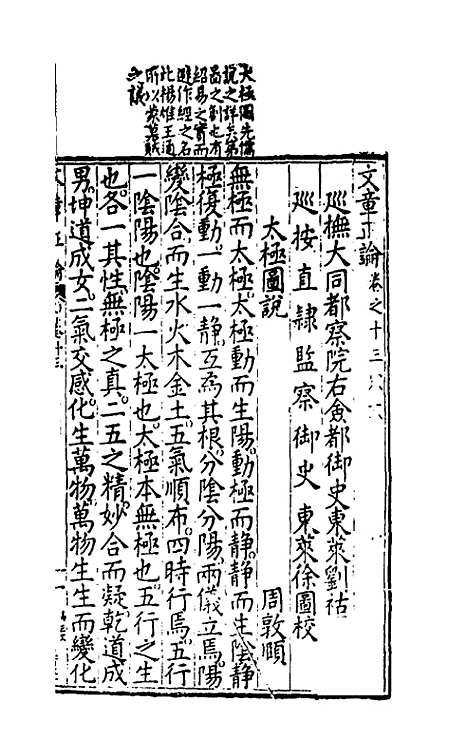 大極圖先儒
說之詳矣第
啚之創也有
紹易之實而
避作經之名
此楊雄王通
所以蒙賊
之議
文章正論卷之十三
巡撫大同都察院右僉都御史東萊劉祜
巡按直隸監察御史東萊徐圖校
太極圖說 周敦頤
無極而太極太極動而生陽。動極而靜。靜而生陰靜
極復動。一動一靜。互為其根。分陰分陽。兩儀立焉。陽
變陰合。而生水火木金土。五氣順布。四時行焉。五行
一陰陽也。陰陽一太極也。太極本無極也。五行之生
也。各一其性。無極之真。二五之精。妙合而凝。乾道成
男。坤道成女。二氣交感。化生萬物。萬物生生。而變化